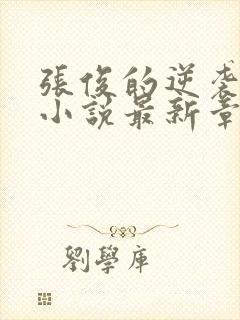 張俊的逆袭
小說最新章
劉學庫